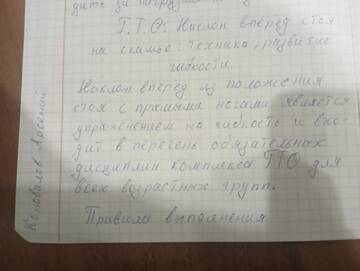 дить за нагрузкой
Г.Т.О: Наклон вперед стоя
на скамье: техника, развитие
гибкости.
Наклон вперед из положения
стоя с прямыми ногами является
упражнением на гибкость и вхо-
дит в перечень обязательных
дисциплин комплекса ГТО для
всех возрастных групп.
Правила выполнения
Коновалов Арсений